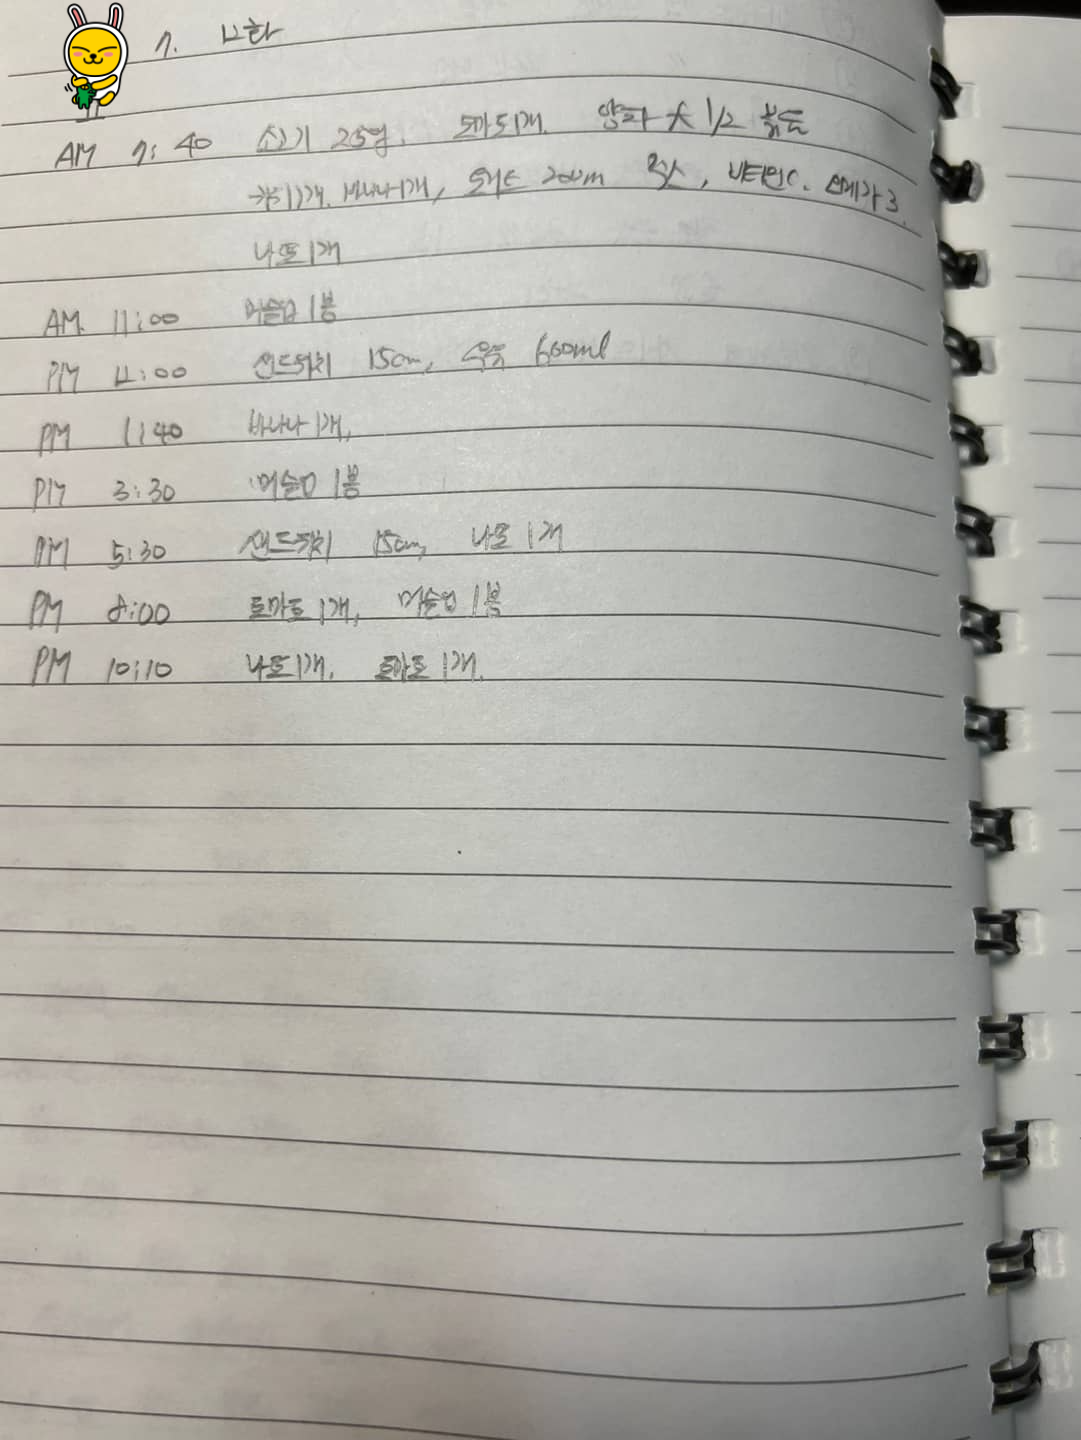 AM 7:40 소고기 25g. 토마토1개. 양파 大 1/2 볶음
키위1개. 바나나1개, 200ml 믹스, 비타민C. 오메가3.
나또1개
AM. 11:00 머슬업 1봉
PM 12:00 샌드위치 15cm, 600ml
PM 1:40 바나나 1개,
PM 3:30 머슬업 1봉
PM 5:30 샌드위치 15cm, 나또 1개
PM 8:00 토마토 1개, 머슬업 1봉
PM 10:10 나또1개. 토마토 1개.